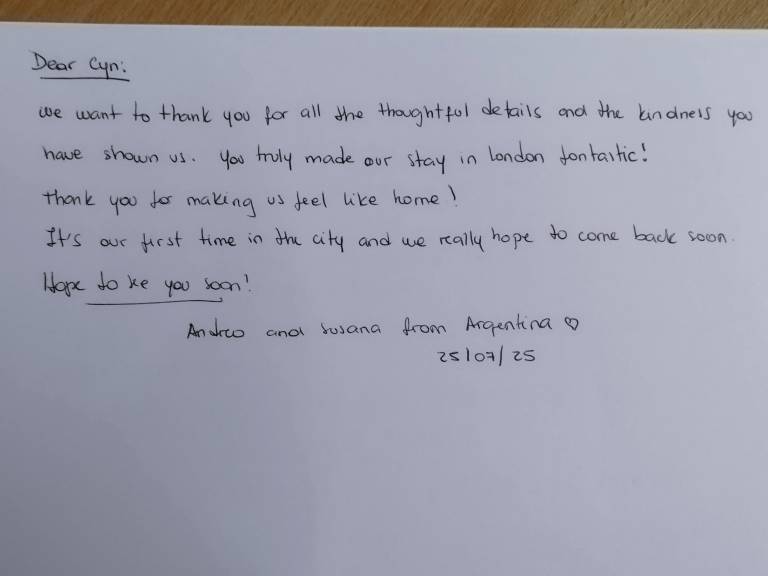 Dear Cyn:
we want to thank you for all the thoughtful details and the kindness you
have shown us. You truly made our stay in london fantastic!
thank you for making us feel like home!
It's our first time in the city and we really hope to come back soon.
Hope to see you soon!
Andrea and Susana from Argentina ♡
25/07/25